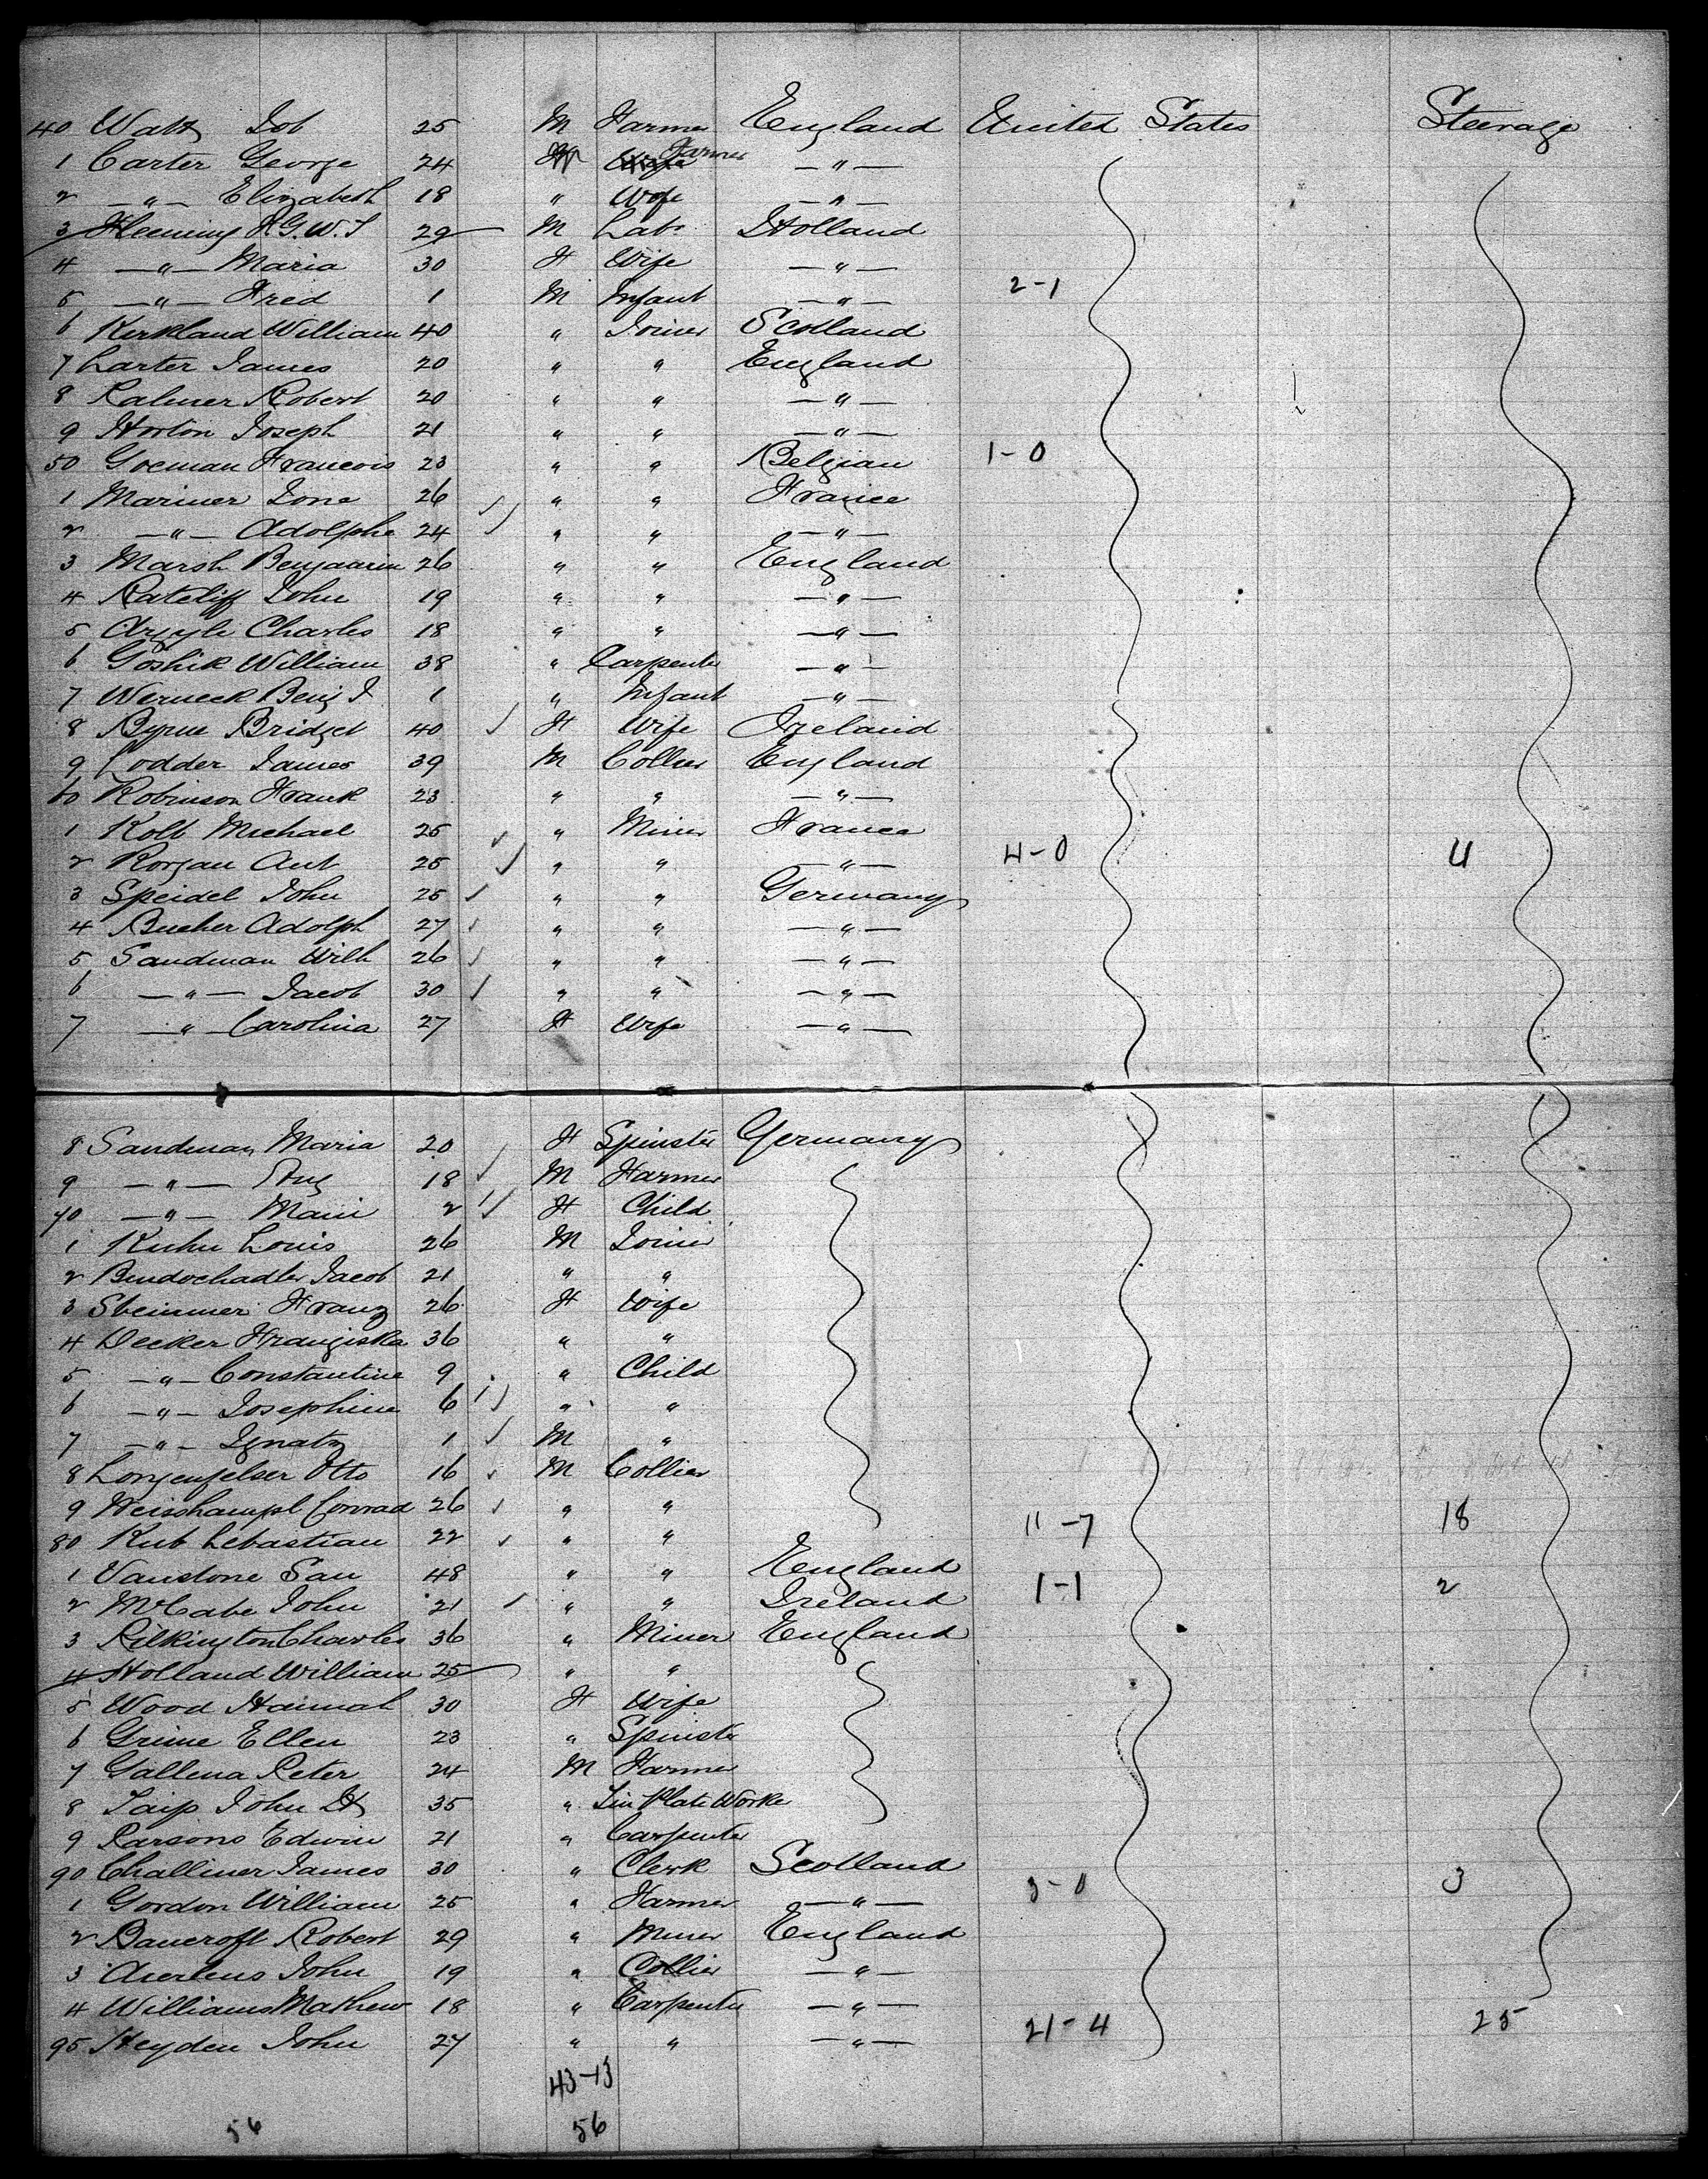 40 Watts Job 25 M Farmer England United States Steerage
1 Carter George 24 M Farmer — " —
2 — " — Elizabeth 18 " Wife — " —
3 Fleming F.G.W.T 29 M Labr Holland
4 — " — Maria 30 F Wife — " —
5 — " — Fred 1 M Infant — " — 2-1
6 Kirkland William 40 " Joiner Scotland
7 Larter James 20 " " England
8 Palmer Robert 20 " " — " —
9 Horton Joseph 21 " " — " —
50 Goeman Francois 23 " " Belgian 1-0
1 Mariner Zone 26 " " France
2 — " — Adolphe 24 " " — " —
3 Marsh Benjaamin 26 " " England
4 Ratcliff John 19 " " — " —
5 Argyle Charles 18 " " — " —
6 Goshik William 38 " Carpenter — " —
7 Werneck Benj J 1 " Infant — " —
8 Byrne Bridget 40 F Wife Ireland
9 Lodder James 39 M Collier England
60 Robinson Frank 23 " " — " —
1 Kolb Michael 25 " Miner France
2 Rorgan Ant 25 " " — " — 4-0 4
3 Speidel John 25 " " Germany
4 Bucher Adolph 27 " " — " —
5 Sandman Wilh 26 " " — " —
6 — " — Jacob 30 " " — " —
7 — " — Carolina 27 F Wife — " —
8 Sandman Maria 20 F Spinster Germany
9 — " — Aug 18 M Farmer
70 — " — Marii 2 F Child
1 Kuhn Louis 26 M Joiner
2 Bendochadler Jacob 21 " "
3 Steimmer Franz 26 F Wife
4 Decker Franziska 36 " "
5 — " — Constantine 9 " Child
6 — " — Josephine 6 " "
7 — " — Ignatz 1 M "
8 Longenfelser Otto 16 M Collier
9 Weischampl Conrad 26 " " 11-7 18
80 Kub Sebastian 22 " "
1 Vanstone Sam 48 " " England 1-1 2
2 McCabe John 21 " " Ireland
3 Pilkington Charles 36 " Miner England
4 Holland William 25 " "
5 Wood Hannah 30 F Wife
6 Grime Ellen 23 " Spinster
7 Gallena Peter 24 M Farmer
8 Taip John H 35 " Tin Plate Worke
9 Parsons Edwin 21 " Carpenter
90 Challiner James 30 " Clerk Scotland 3-0 3
1 Gordon William 25 " Farmer — " —
2 Bancroft Robert 29 " Miner England
3 John 19 " Collier — " —
4 Williams Mathew 18 " Carpenter — " —
95 Heyden John 27 " " — " — 21-4 25
43-13
56 56